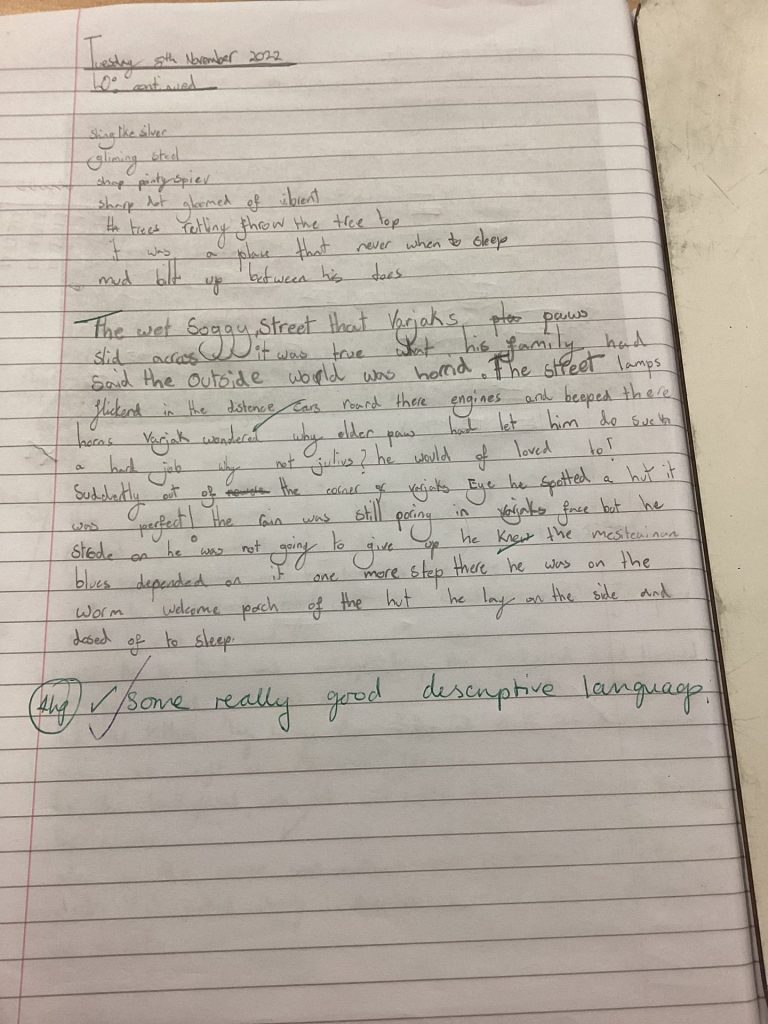 Tuesday 5th November 2022
LO: continued
sling like silver
gliming steel
shap pointy spier
sharp dot gloomed of vibrent
trees retling throw the tree top
it was a place that never when to sleep
mud bilt up between his toes
The wet Soggy, Street that Varjaks paws
slid across it was true what his family had
Said the outside world was horrid. The street lamps
flickerd in the distence cars roard there engines and beeped there
horns Varjak wondered why elder paw had let him do such
a hard job why not julius? he would of loved to!
Suddently out of the corner of varjaks Eye he spotted a hut it
was perfect! the rain was still poring in varjaks face but he
strode on he was not going to give up he knew the
blues depended on it one more step there he was on the
worm welcome porch of the hut he lay on the side and
dosed of to sleep.
Some really good descriptive language.